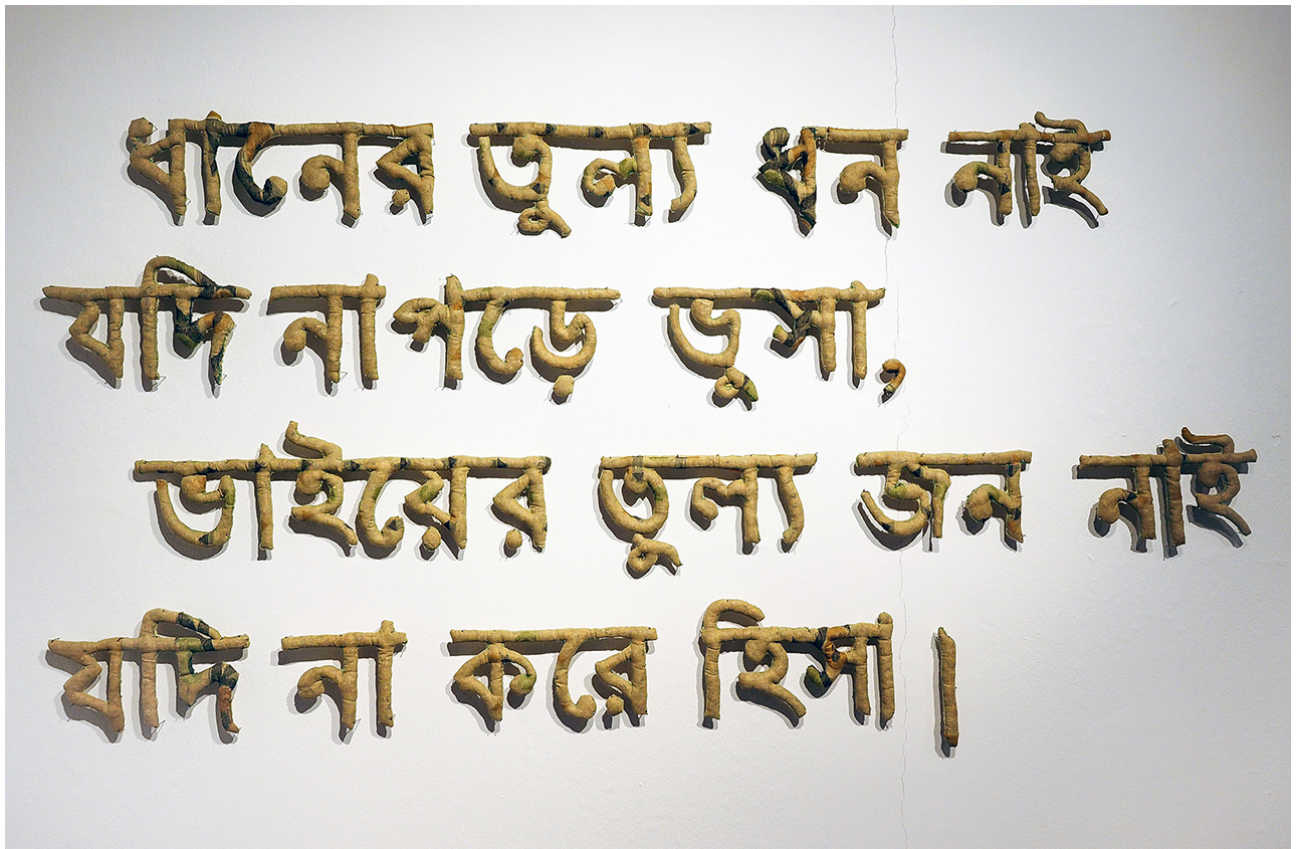 ধানের তুল্য ধন নাই
যদি না পড়ে ভুসা,
ভাইয়ের তুল্য জন নাই
যদি না করে হিসা।